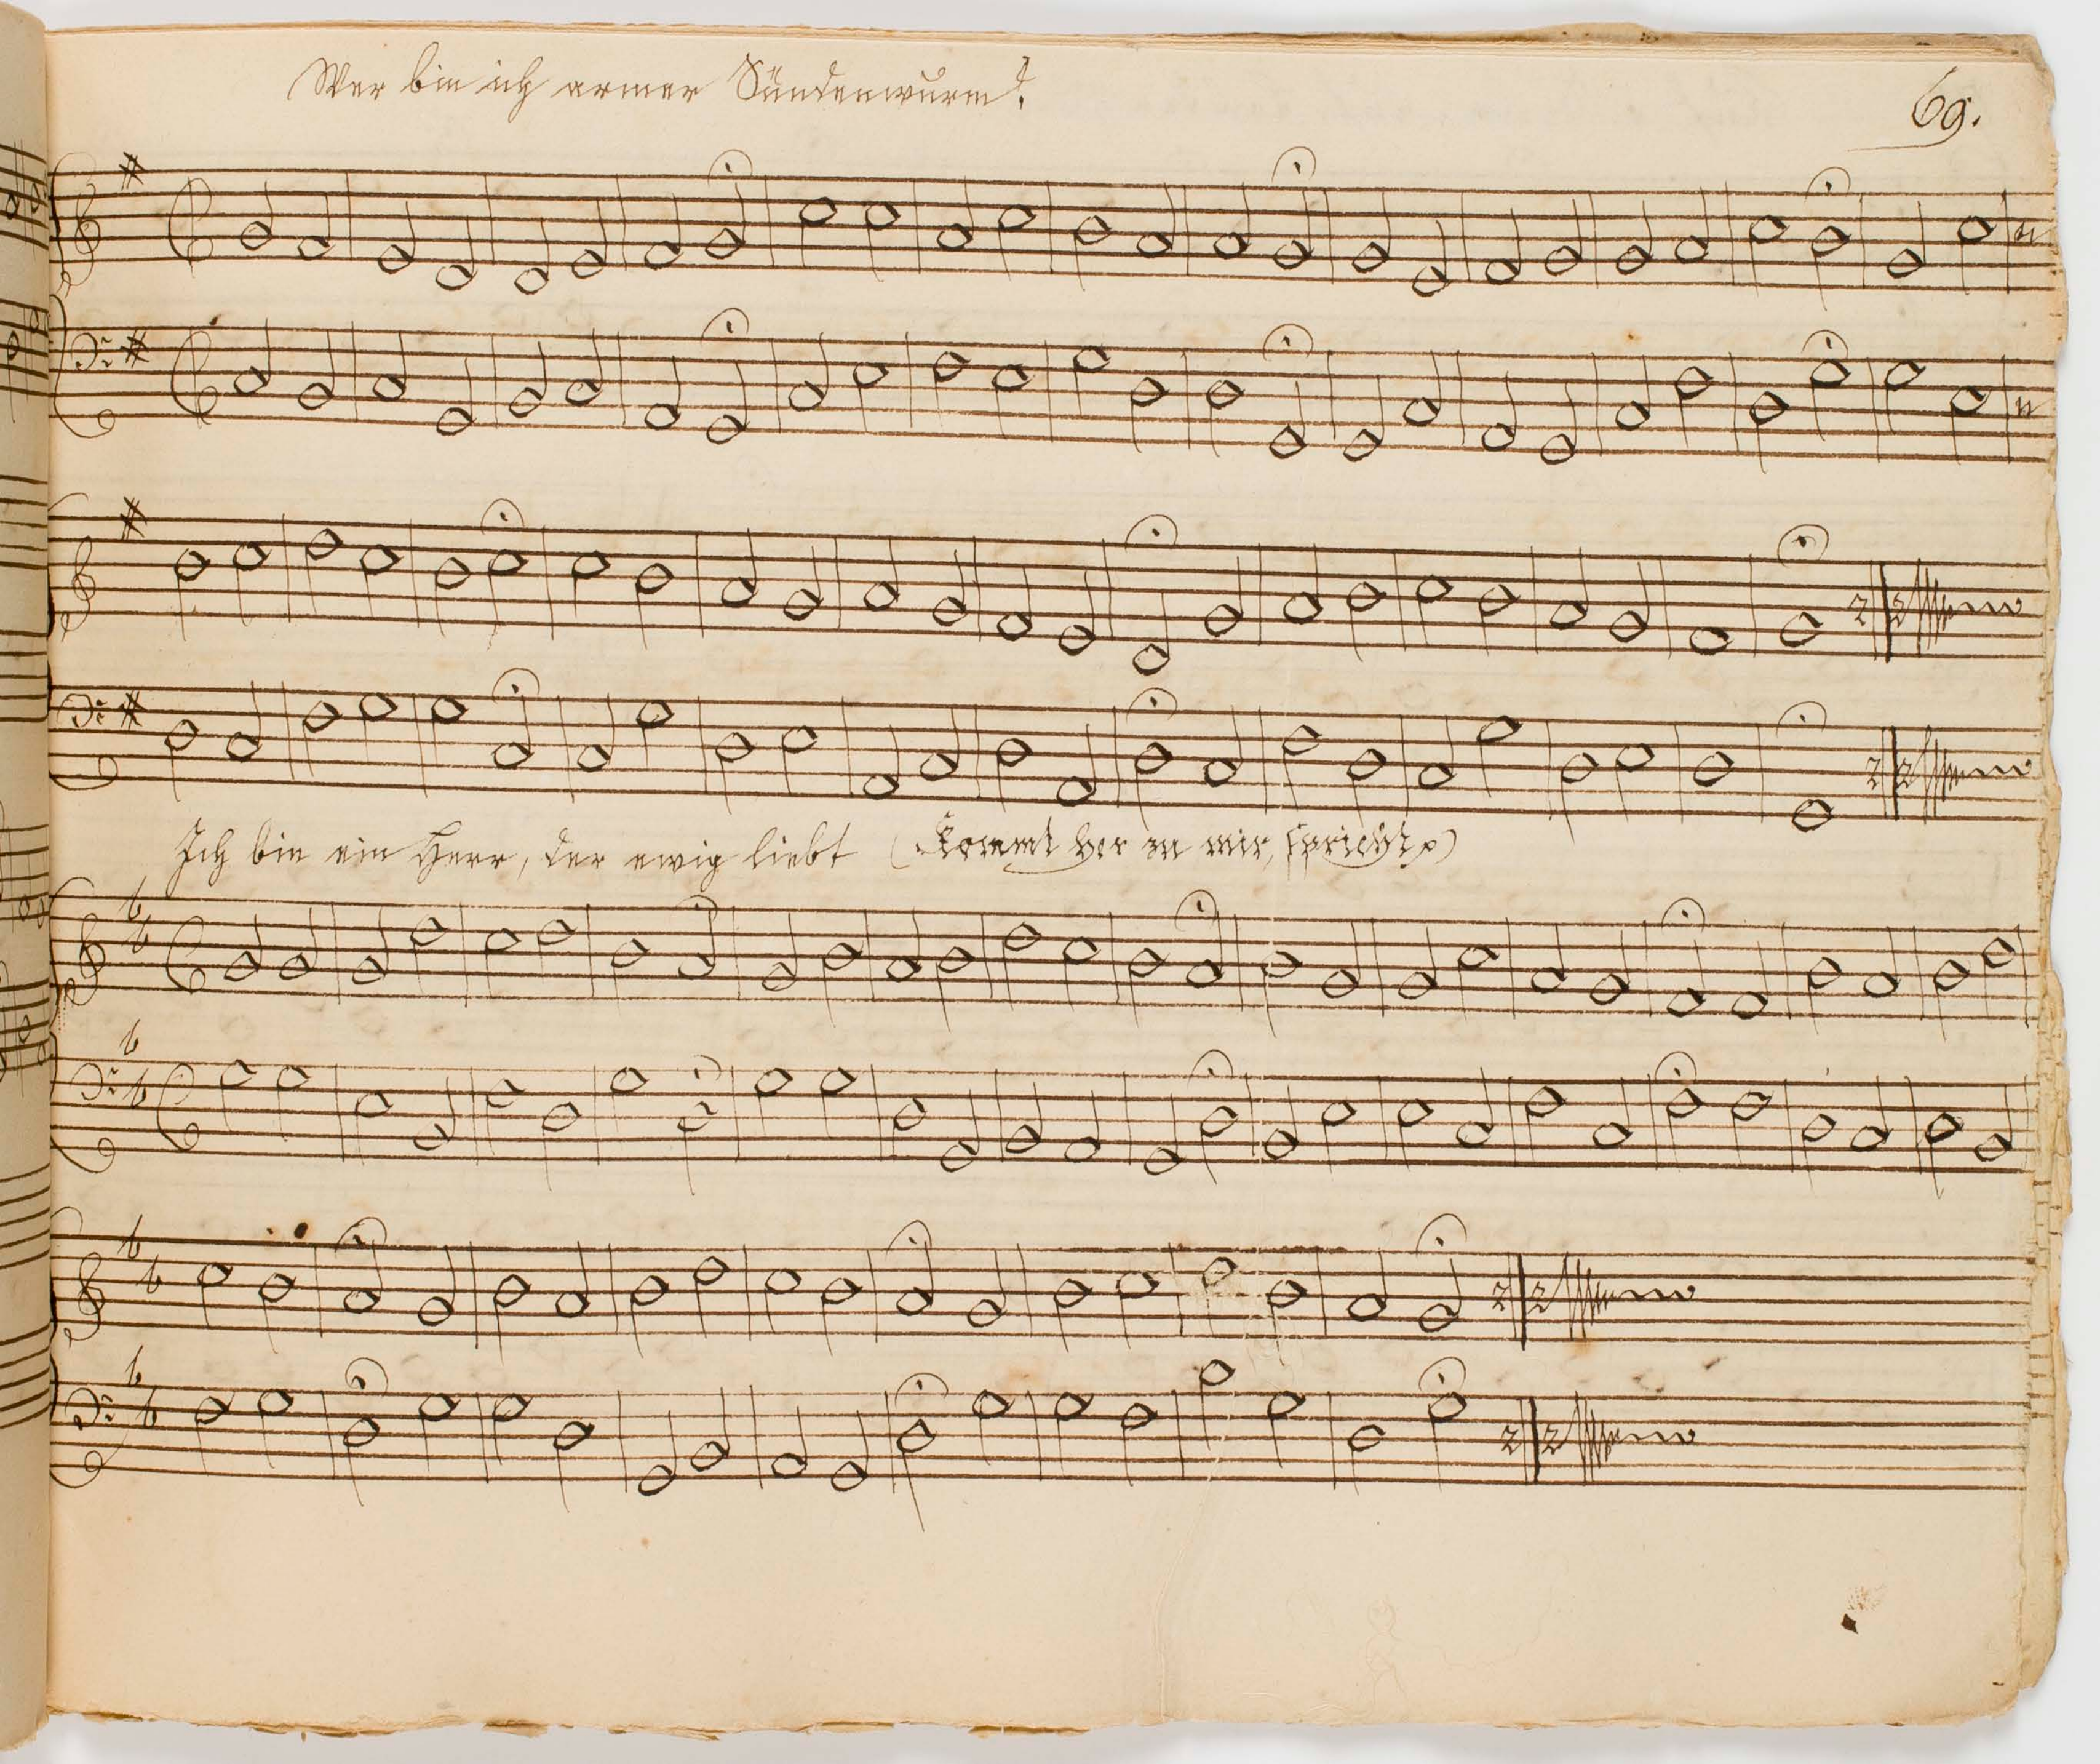 Wer bin ich armer Sündenwurm?
69.
Ich bin ein Herr, der ewig liebt (Kommt her zu mir, spricht p)